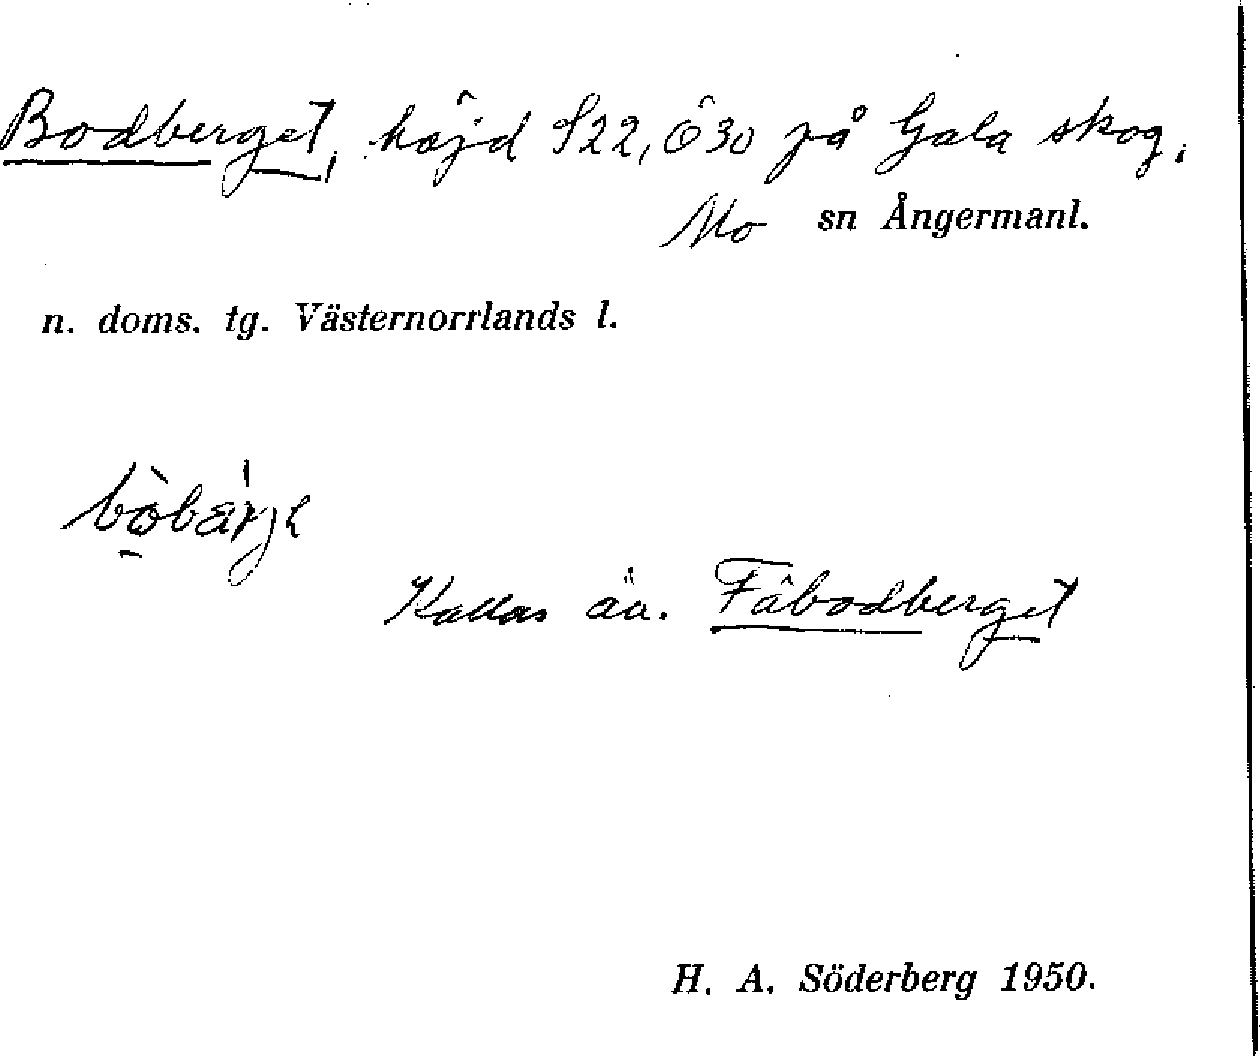 Bodberget, höjd S22, Ö30 på Gala skog.
Mo sn Ångermanl.
n. doms. tg. Västernorrlands l.
Kallas äv. Fäbodberget
H. A. Söderberg 1950.